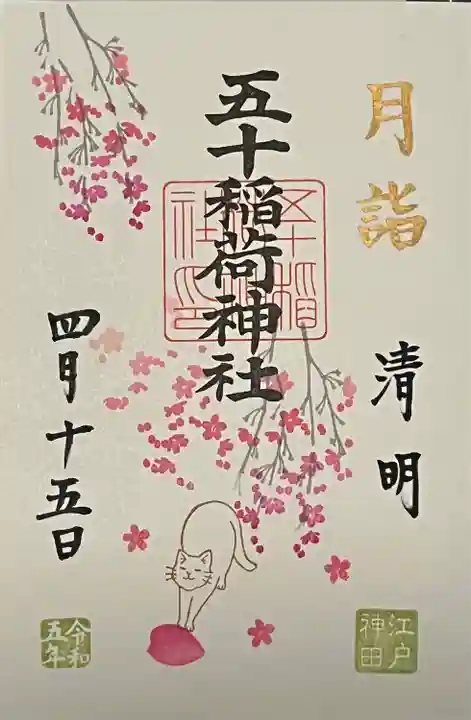 月詣
清明
五十稲荷神社
四月十五日
江戸
神田
令和
五年